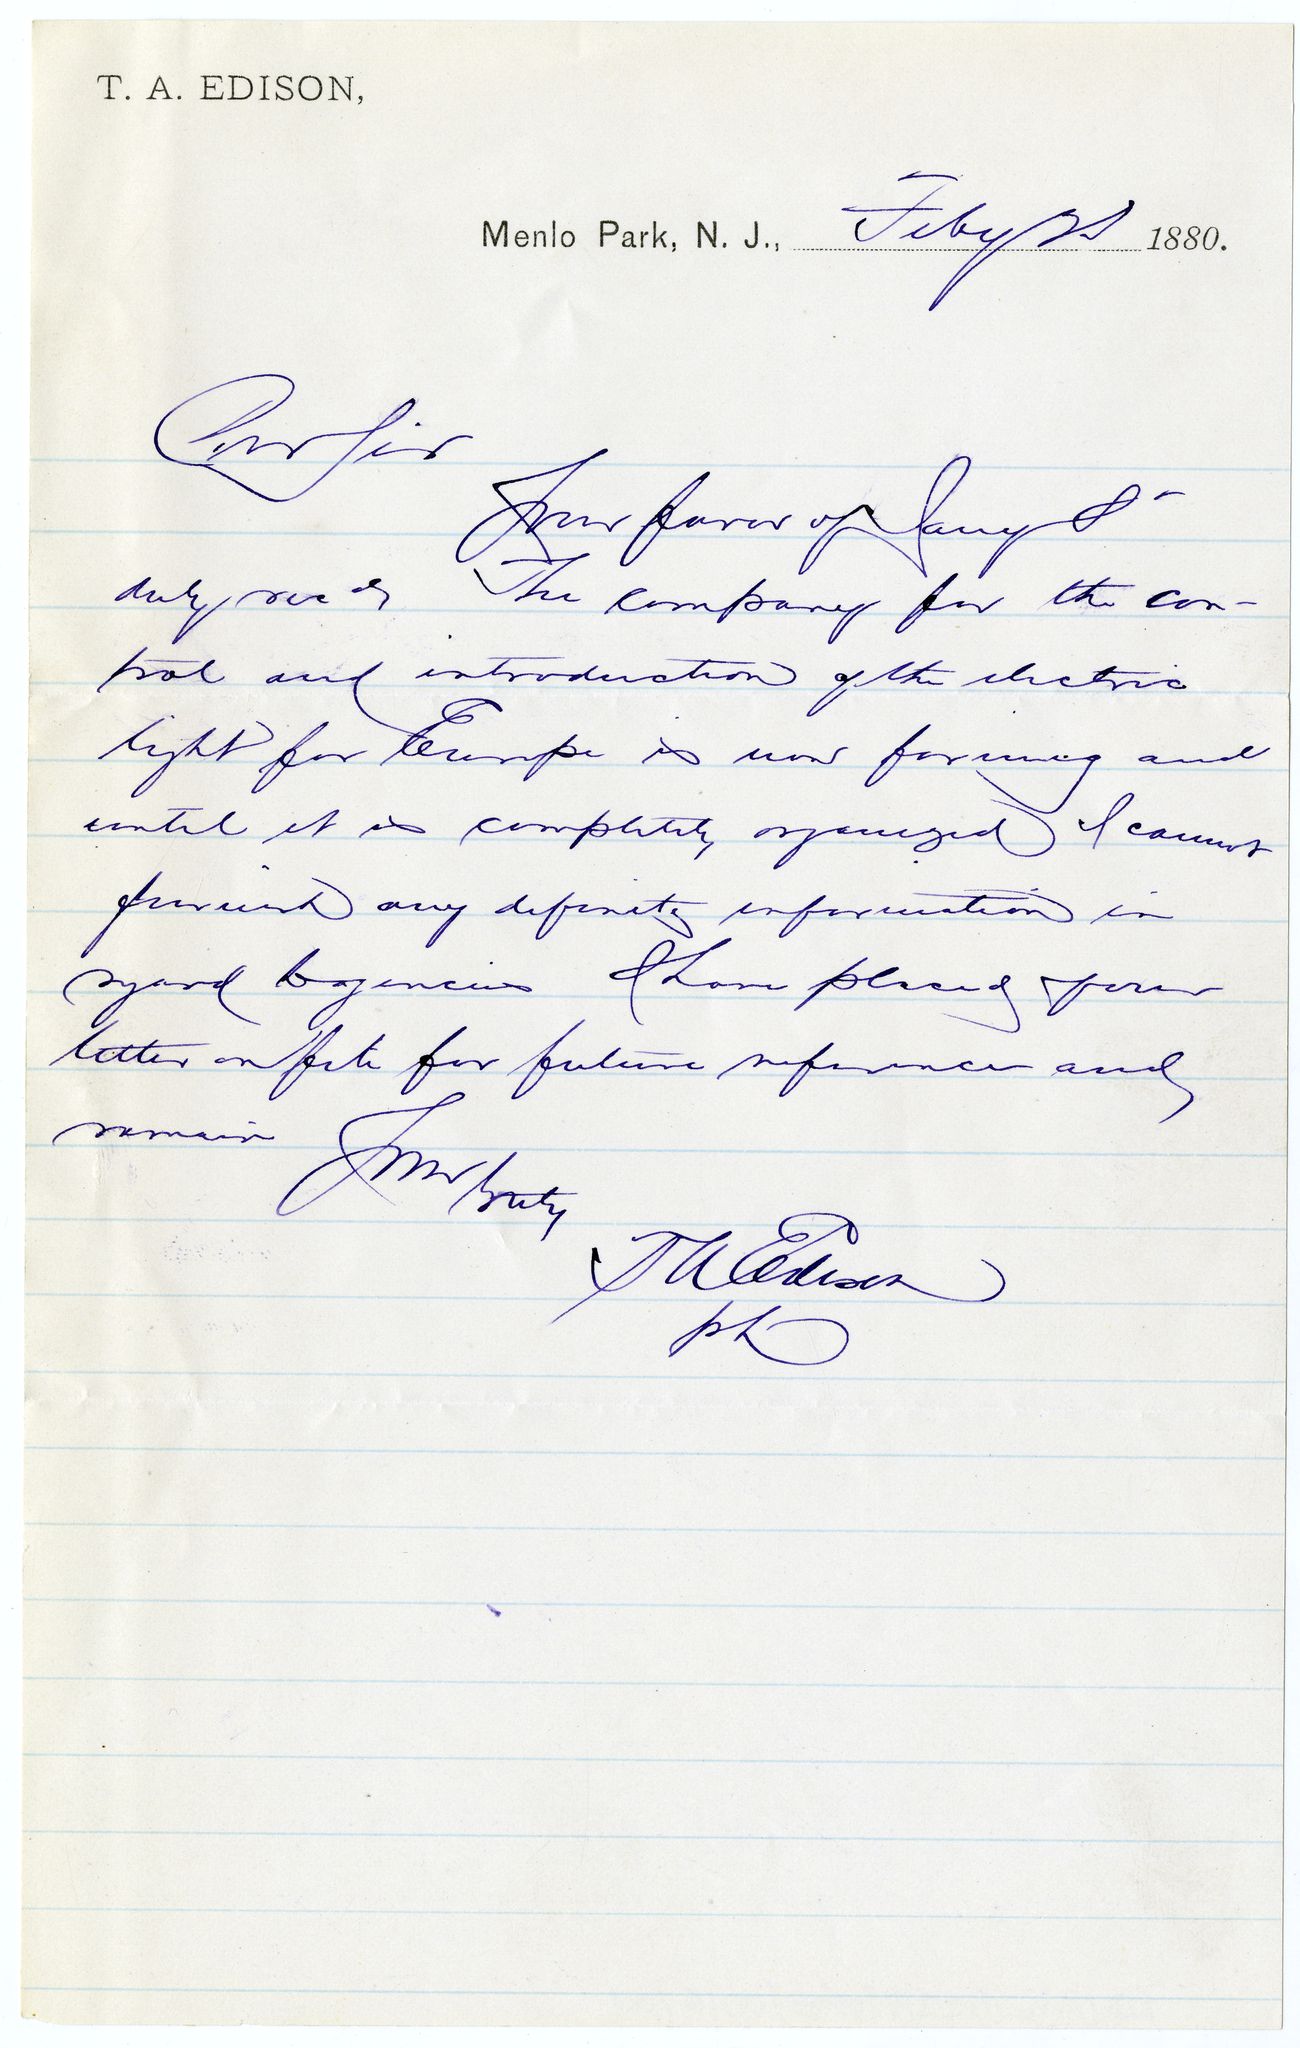 T. A. EDISON,
Menlo Park, N. J., Feby 1880.
Dear Sir
Your favor of Jany 8"
duly recd, The company for the con-
trol and introduction of the electric
light for Europe is now forming and
until it is completely organized I cannot
furnish any definite information in
regard to agencies I have placed your
letter on file for future reference and
remain Your truly
T A Edison